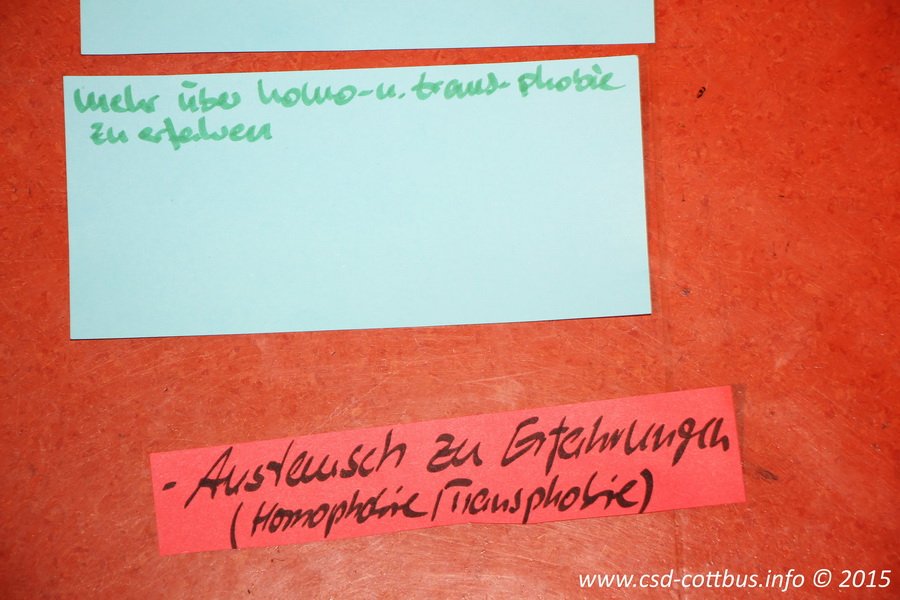 mehr über homo- u. trans-phobie
zu erfahren
- Austausch zu Erfahrungen
(Homophobie/Transphobie)
www.csd-cottbus.info © 2015